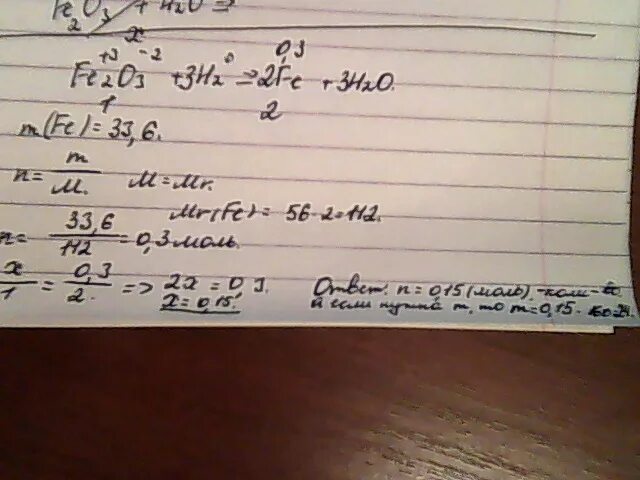 Fe2O3 + H2O =>
x 0,3
+3 -2 0
Fe2O3 + 3H2 => 2Fe + 3H2O.
1 2
m(Fe) = 33,6.
n = m/M. M = Mr.
Mr(Fe) = 56·2 = 112.
n = 33,6/112 = 0,3 моль.
x/1 = 0,3/2. => 2x = 0,3.
x = 0,15.
Ответ. n = 0,15 (моль) - кол-
а если нужна m, то m = 0,15 ·